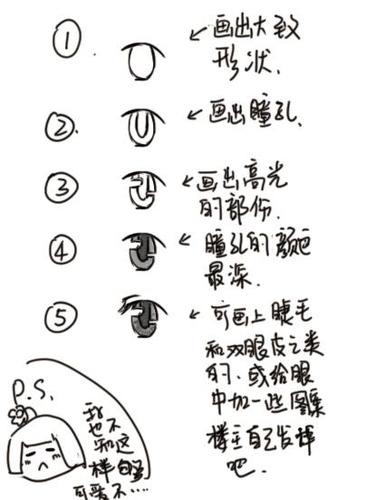 ①
←画出大致
形状.
②.
←画出瞳孔.
③
←画出高光
的部份.
④
←瞳孔的颜色
最深.
⑤
←可画上睫毛
和双眼皮之类
的、或给眼
中加一些图案
楼主自己发挥
吧.
P.S.
我
也不
知这
样
可爱不····